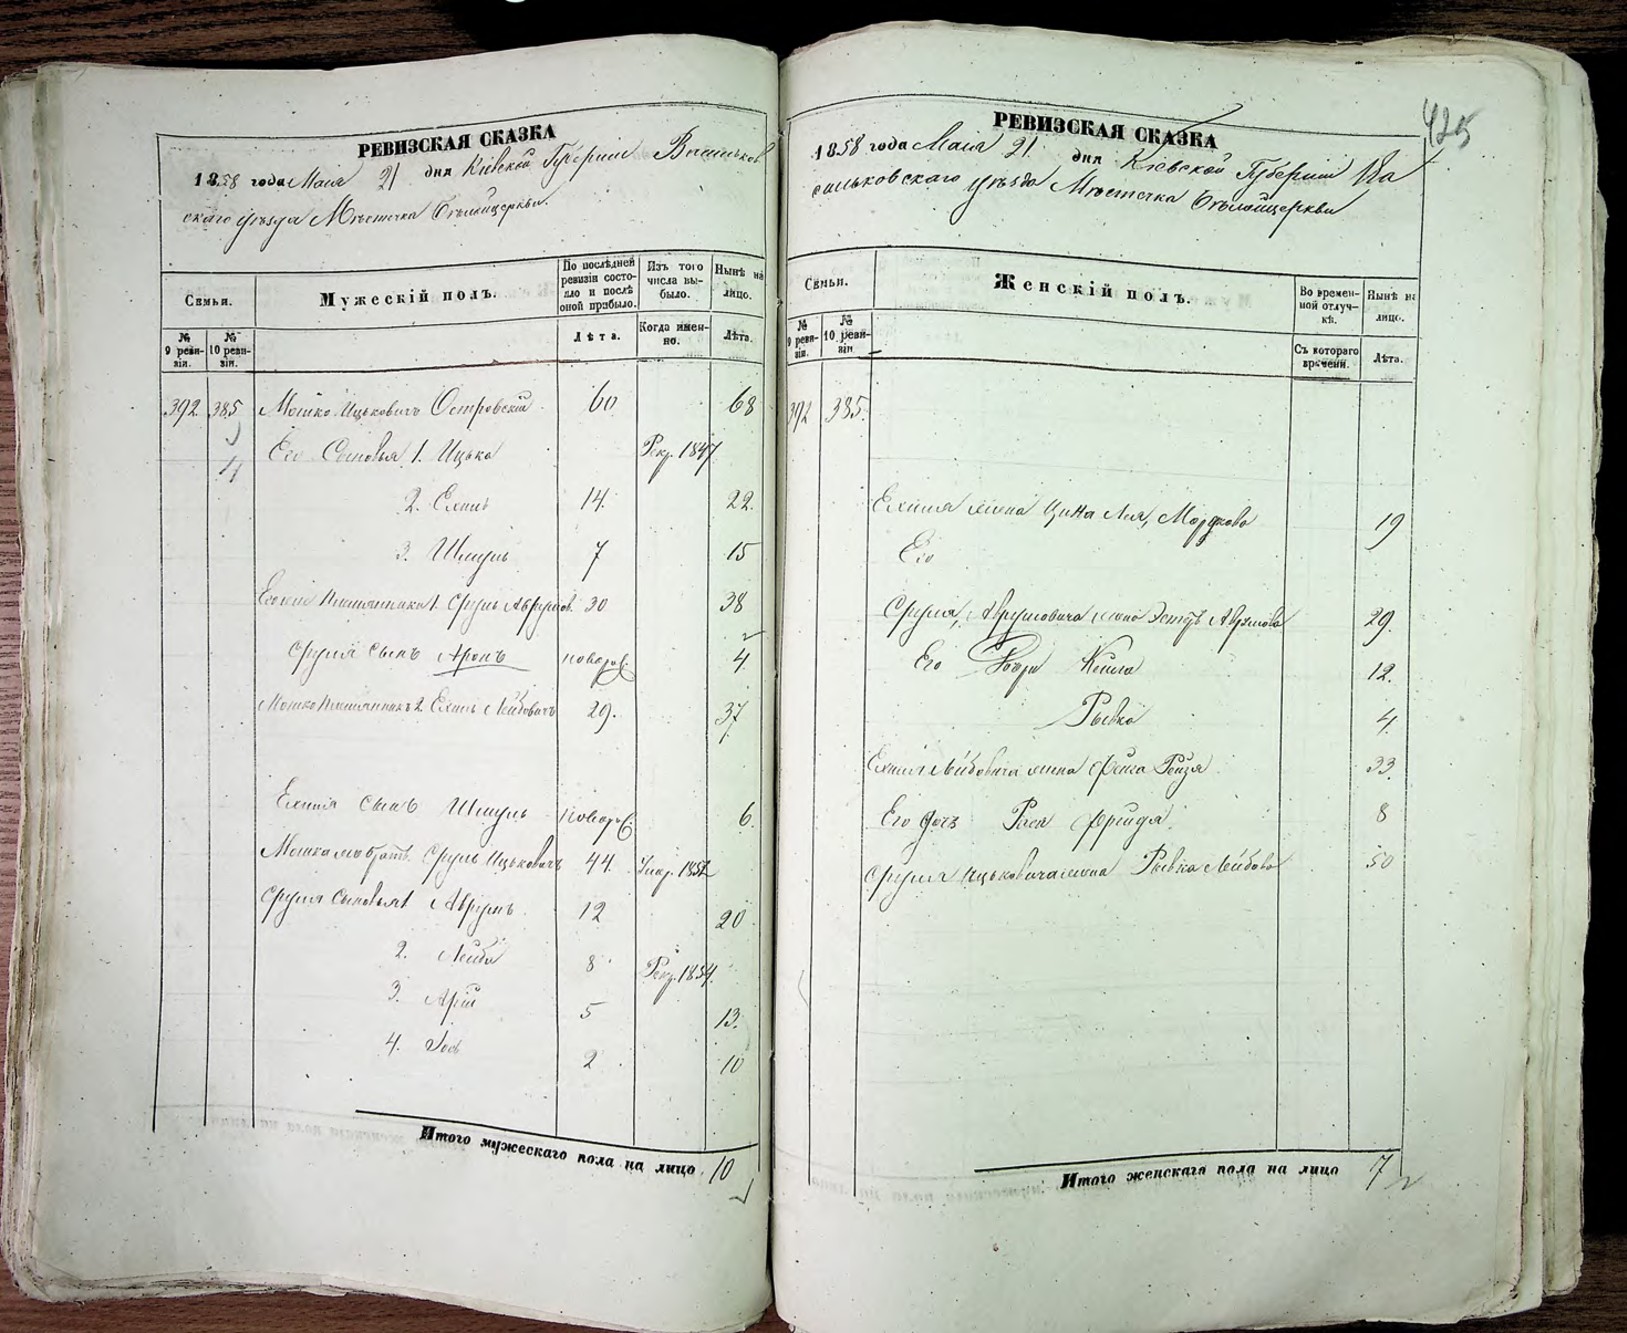 РЕВИЗСКАЯ СКАЗКА
1858 года Мая 21 дня Кіевской Губерніи Василько
скаго уѣзда Мѣстечка Бѣлойцеркви.
Семьи.
Мужескій полъ.
По послѣдней ревизіи состояло и послѣ оной прибыло.
Изъ того числа выбыло.
Нынѣ на лицо.
№ 9 ревизіи.
№ 10 ревизіи.
Лѣта.
Когда именно.
Лѣта.
392 385 Мошко Ицьковичъ Островскій 60 68
4
Его Сыновья 1. Ицько Рекр. 1847
2. Ехиль 14. 22.
3. Шмуль 7 15
Племянники 1. Сруль Аврумов. 30 38
Сруля сынъ Аронъ новорож. 4
Мошко Племянникъ 2. Ехиль Лейбовичъ 29. 37
Ехиля сынъ Шмуль новорож. 6.
Мошка братъ Сруль Ицьковичъ 44. Умер. 1852
Сруля Сыновья 1 Аврумъ 12 20
2. Лейба 8 Рекр. 1854.
3. Арій 5 13.
4. Іось 2 10
Итого мужескаго пола на лицо 10
425
РЕВИЗСКАЯ СКАЗКА
1858 года Мая 21 дня Кіевской Губерніи Ва
сильковскаго уѣзда Мѣстечка Бѣлойцеркви
Семьи.
Женскій полъ.
Во временной отлучкѣ.
Нынѣ на лицо.
№ 9 ревизіи.
№ 10 ревизіи
Съ котораго времени.
Лѣта.
392 385.
Ехиля жена Цина Лея, Мордкова 19
Его
Сруля, Аврумовича жена Эстеръ Аврумова 29.
Его Дочери 12.
Рывка 4.
Ехиля Лейбовича жена Фейга Рейзя 33.
Его дочь Фрейда. 8
Сруля Ицьковича жена Рывка Лейбова 50
Итого женскаго пола на лицо 7